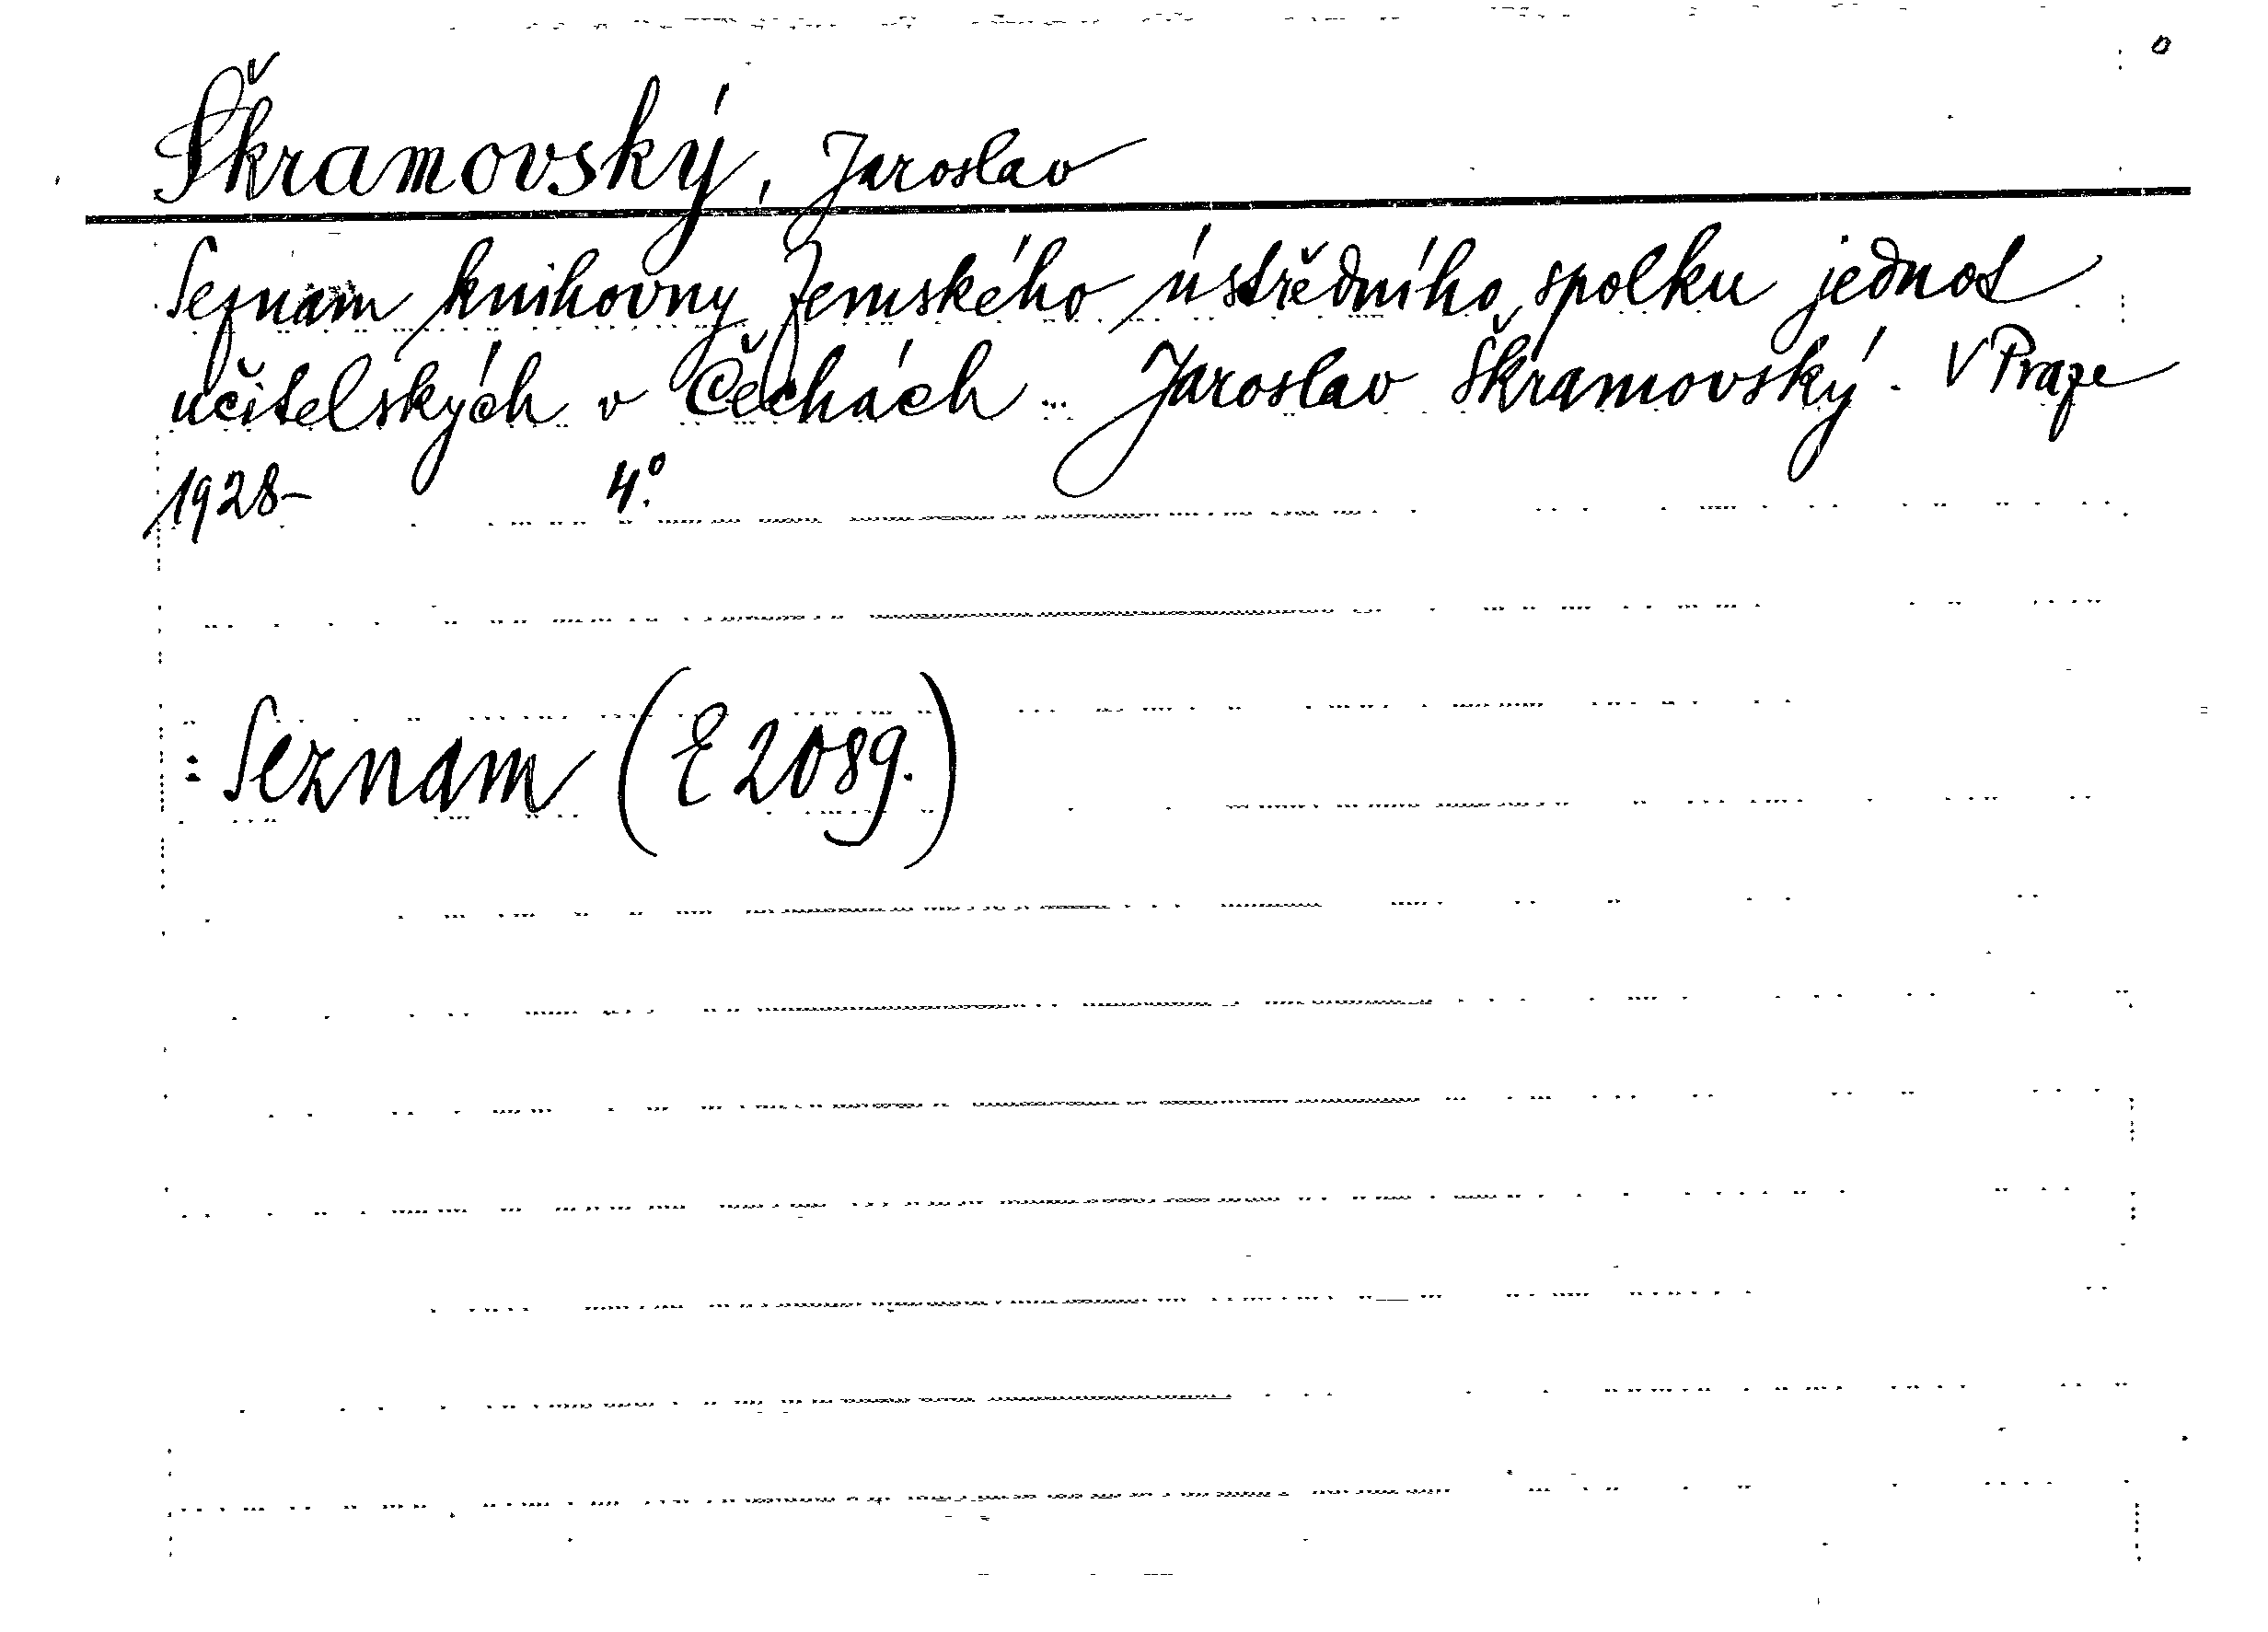 Škramovský, Jaroslav
Seznam knihovny Zemského ústředního spolku jednot
učitelských v Čechách ... Jaroslav Škramovský. V Praze
1928- 4°.
: Seznam (E 2089.)